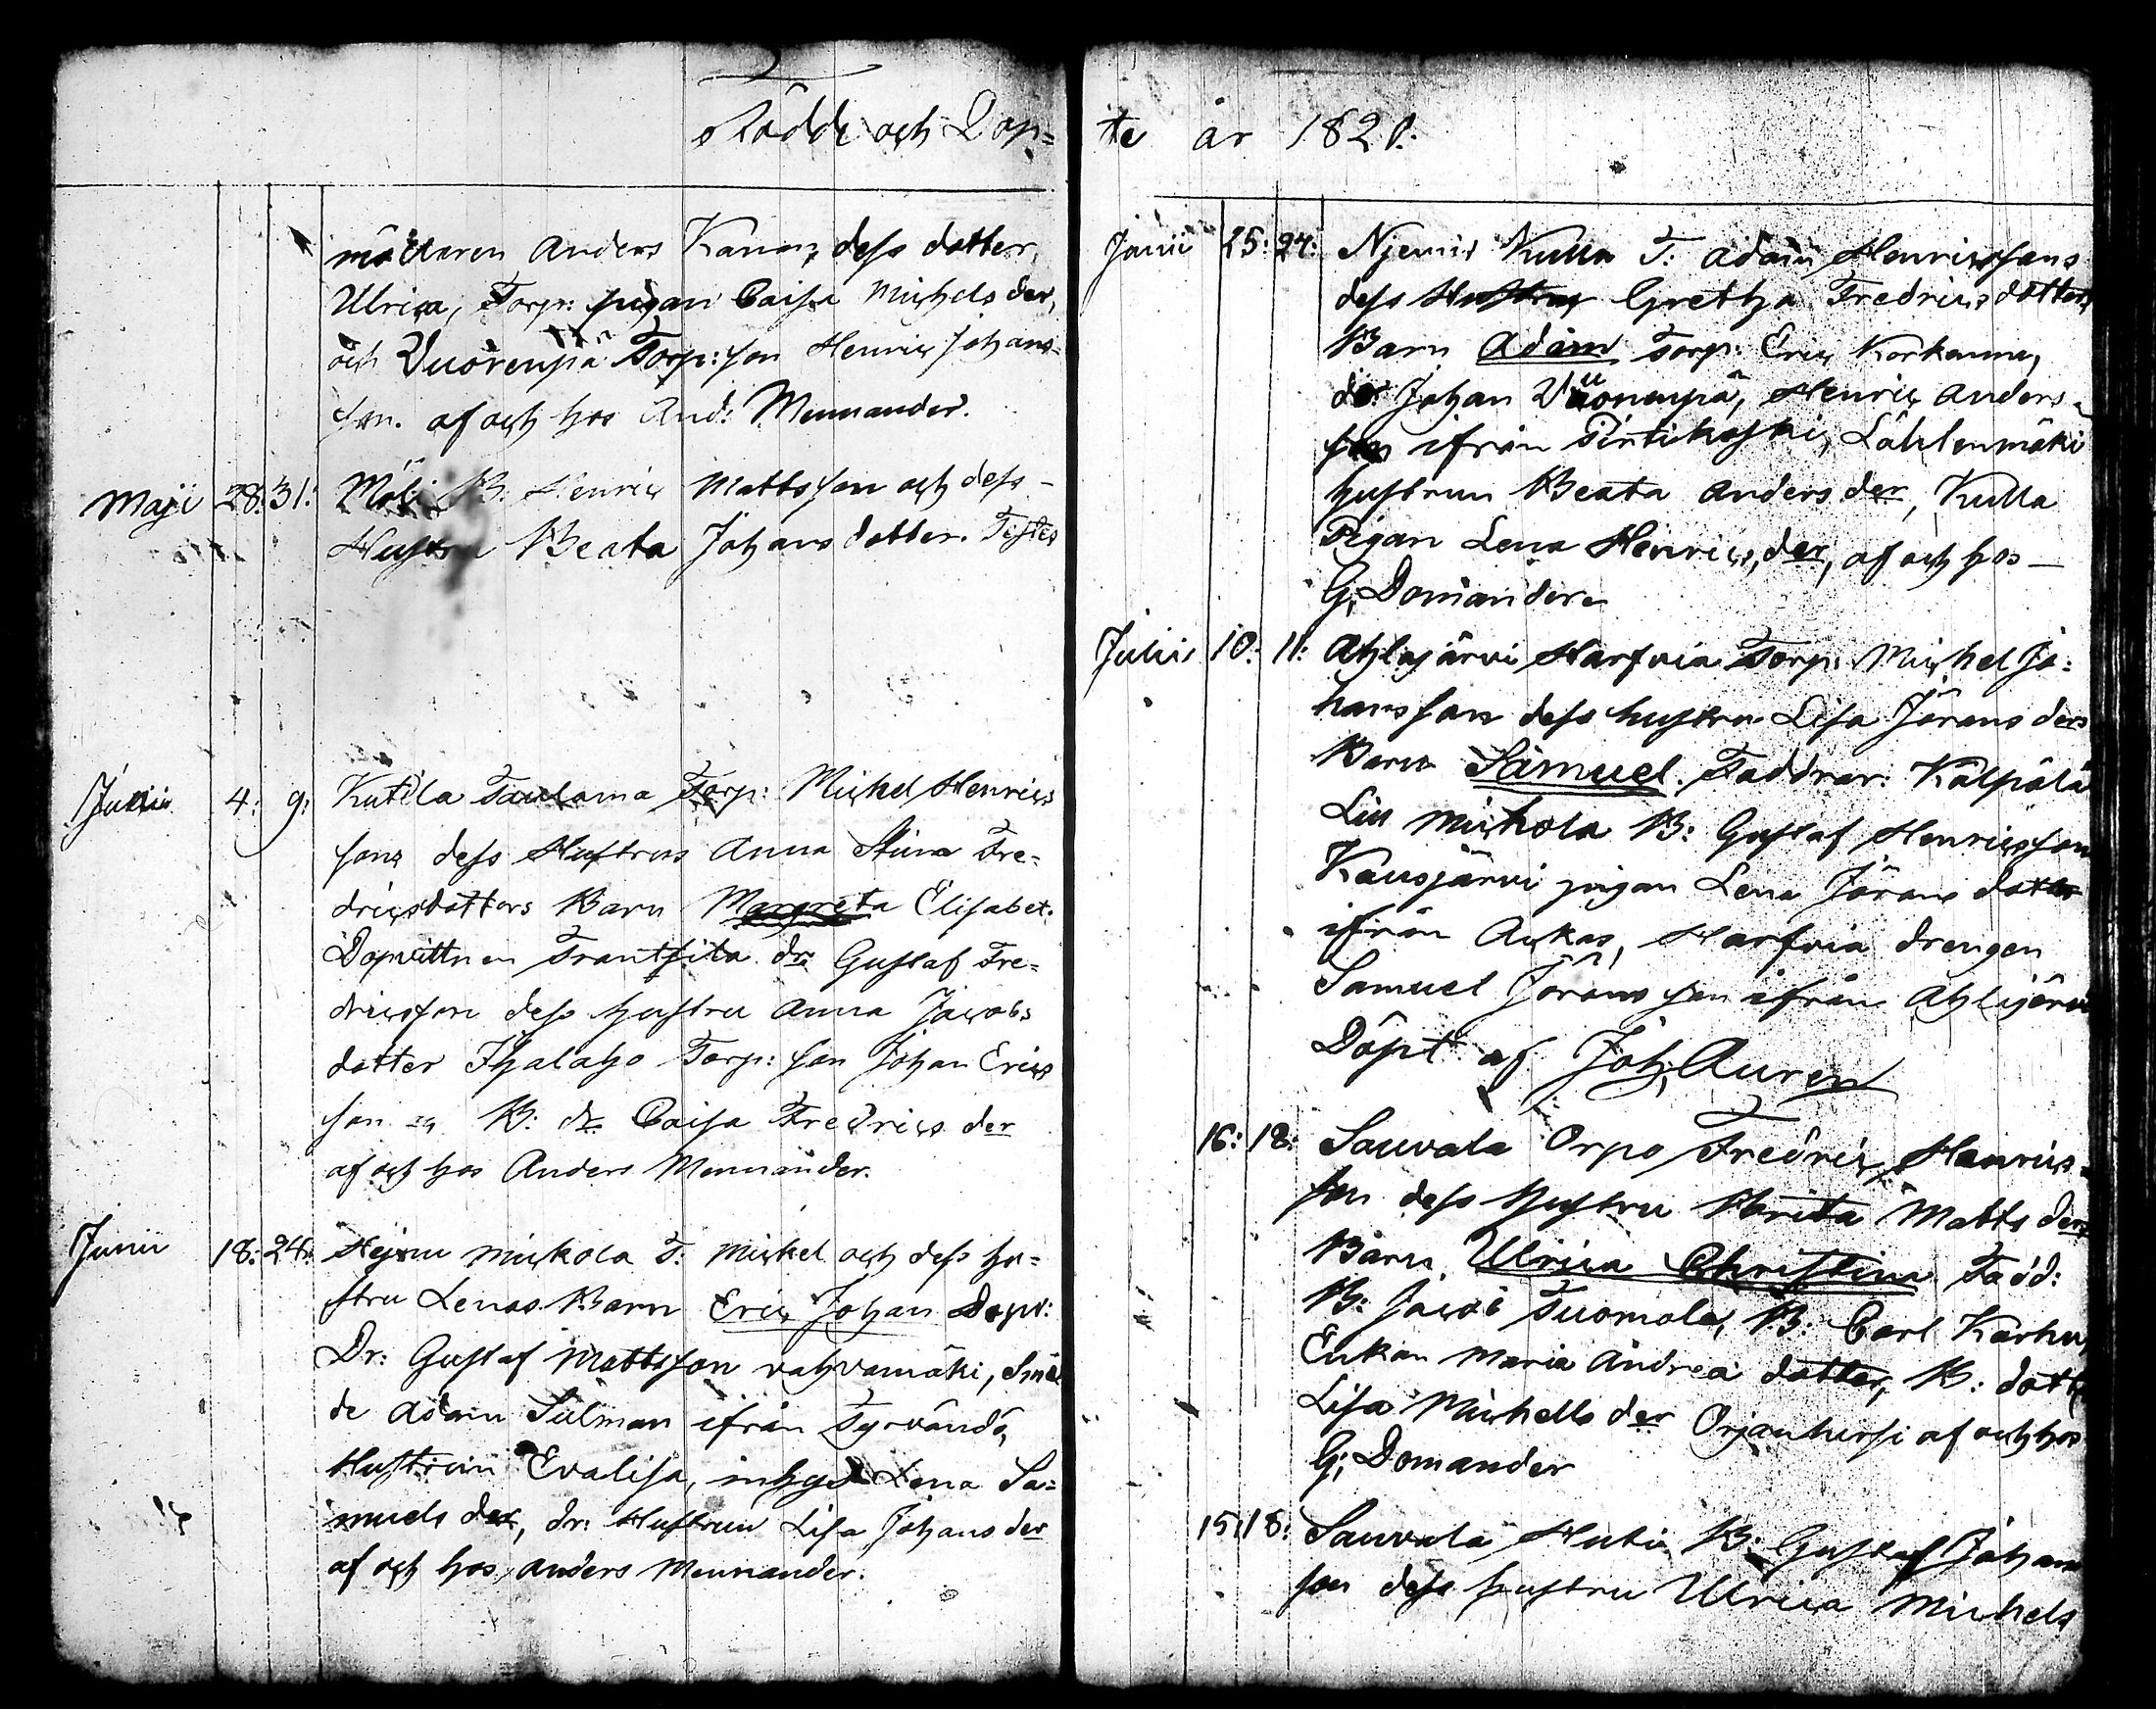 Födde och Döp=
mättaren Anders Kanan, dess dotter
Ulrica, Torp: pigan Caisa Michels der,
och Vuorenpä Torp: son Henric Johans-
son. af och hos And: Mennander.
Maji 28: 31: B: Henric Mattsson och dess -
Hustru Beata Johans dotter. Testes
Junii 4: 9: Kutila Taulama Torp: Michel Henrics
sons dess Hustrus Anna Stina Fre=
dricsdotters Barn Margreta Elisabet.
Dopvittnen Frantsila dr: Gustaf Fre=
dricsson dess hustru Anna Jacobs
dotter Ihalaho Torp: son Johan Erics
son B: dr Caisa Fredrics der
af och hos Anders Mennander.
Junii 18: 24: Mickola T: Mickel och dess hu=
stru Lenas Barn Eric Johan Dopv:
Dr: Gustaf Mattsson vahvamäki, Sme
de Adam Silman ifrån Tyrvändö,
Hustrun Evalisa, inhys Lena Sa=
muels der, dr: Hustrun Lisa Johans der
af och hos, Anders Mennander.
te år 1820:
Junii 25: 24: Njemis Kulla T: Adam Henricssons
dess Hustrus Gretha Fredrics dotters
Barn Adam Torp: Eric Korkann,
dr: Johan Vuorenpä, Henric Anders=
son ifrån Pirtikoski, Lählenmäki
hustrun Beata Anders der, Kulla
Pigan Lena Henrics, der, af och hos -
G; Domander
Julii 10: 11: Ahlajärvi Harfvia Torp: Michel Jo=
hanssons dess hustru Lisa Jörans ders
Barn Samuel. Faddrar: Kälpälä
Lill Mickola B: Gustaf Henricsson
Kausjärvi pigan Lena Jörans dotter
ifrån Ackas, Harfvia drengen
Samuel Jöransson ifrån Ahlajärvi
Döpt af Joh; Auren
16: 18: Sauvala Orpo Fredric Henrics=
son dess hustru Brita Matts ders
Barn Ulrica Christina Fadd:
B: Jacob Tuomola, B: Carl Karhu,
Enkan Maria Andreæ dotter, B: dott
Lisa Michells der Orjanhirsi af och hos
G; Domander
15: 18: Sauvala Huti B: Gustaf Johans
son dess hustru Ulrica Michels